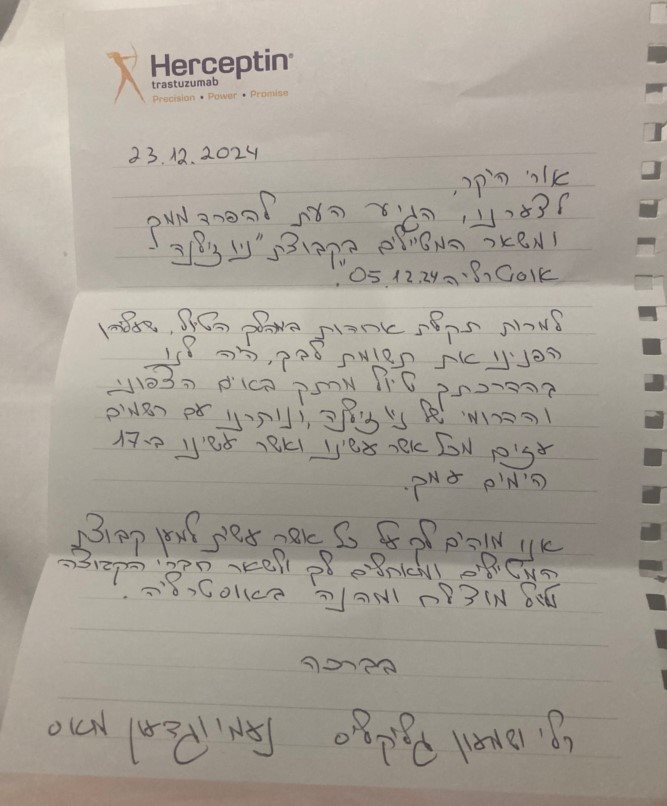 Herceptin®
trastuzumab
Precision • Power • Promise
23.12.2024
אורי היקר,
לצערנו, הגיע העת להפרד ממך
ומשאר המטיילים בקבוצת "ניו זילנד
אוסטרליה 05.12.24".
למרות תקלות אחדות במהלך הטיול, שעליהן
הפנינו את תשומת לבך, היה לנו
בהדרכתך טיול מרתק באיים הצפוני
והדרומי של ניו זילנד, ונותרנו עם רשמים
עזים מכל אשר עשינו ואשר עשינו ב-17
הימים עמך.
אנו מודים לך על כל אשר עשית למען קבוצת
המטיילים ומאחלים לך ולשאר חברי הקבוצה
טיול מוצלח ומהנה באוסטרליה.
בברכה
רלי ושמעון גליקליס נעמי וגדעון מאוס